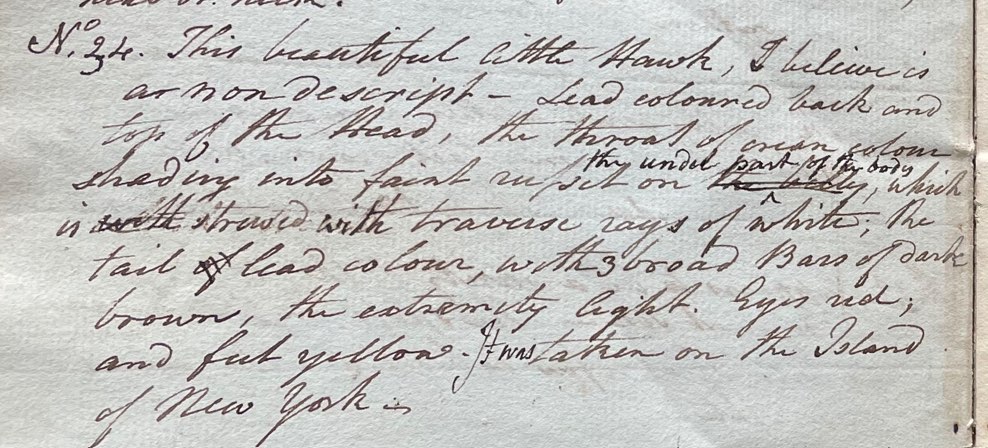 No. 24. This beautiful little Hawk, I believe is
a non descript - Lead coloured back and
top of the Head, the throat of cream colour
the under part of the body
shading into faint russet on the belly, which
is with strewed with traverse rays of white; the
tail of lead colour, with 3 broad Bars of dark
brown, the extremity light. Eyes red;
and feet yellow. It was taken on the Island
of New York -